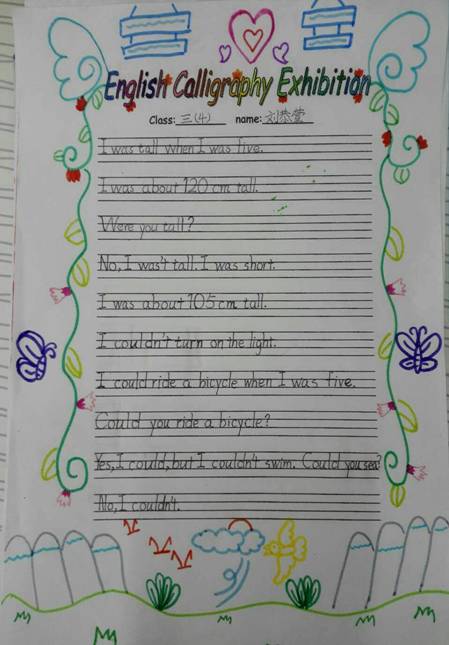 English Calligraphy Exhibition
Class: 三(4) name: 刘恭莹
I was tall when I was five.
I was about 120 cm tall.
Were you tall?
No, I was't tall. I was short.
I was about 105 cm tall.
I couldn't turn on the light.
I could ride a bicycle when I was five.
Could you ride a bicycle?
Yes, I could, but I couldn't swim. Could you sea?
No, I couldn't.